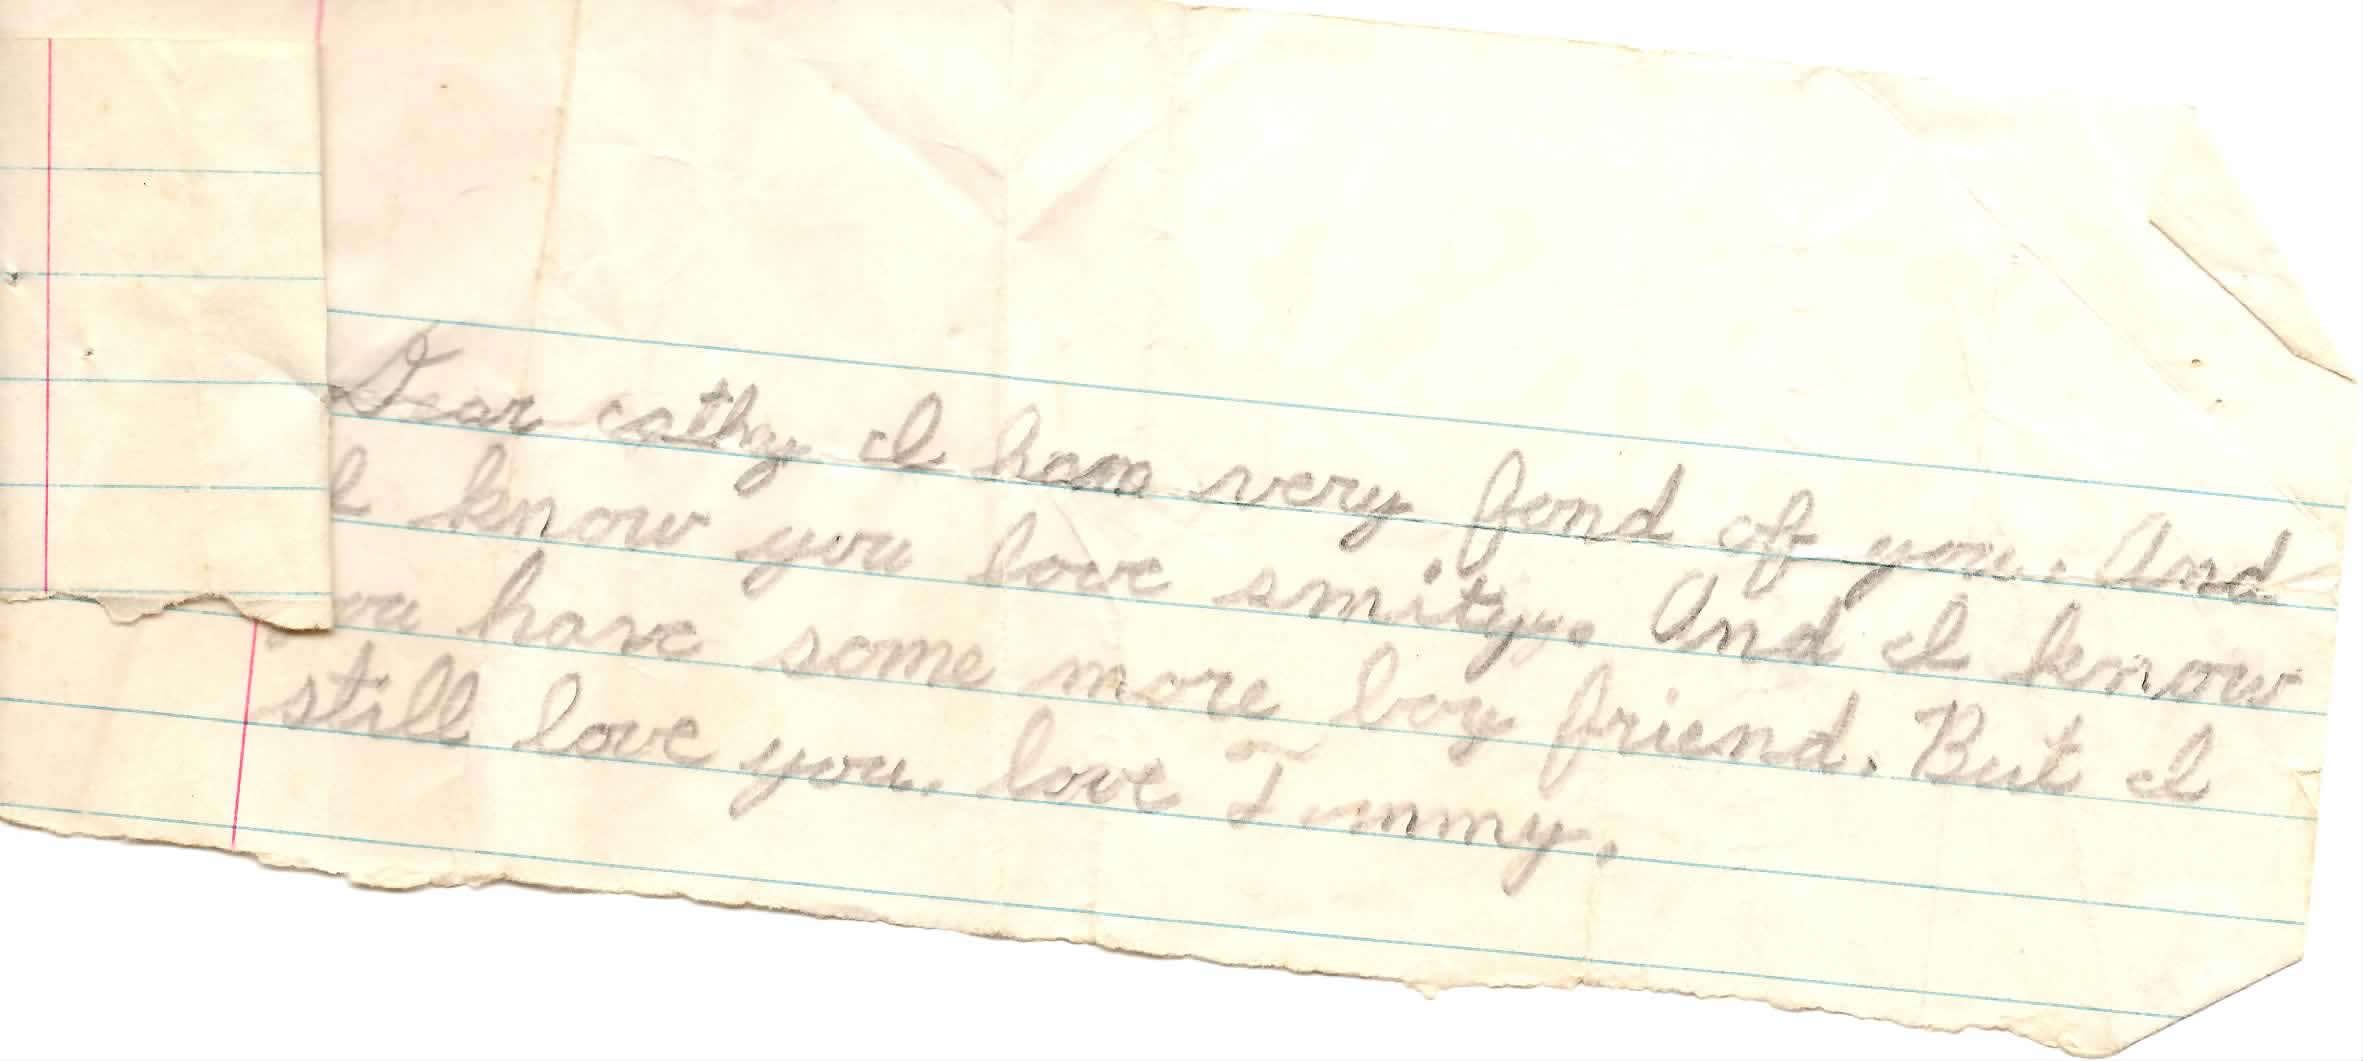 Dear cathy I ham very fond of you. And
I know you love smityy. And I know
you have some more boy friend. But I
still love you. love Timmy.